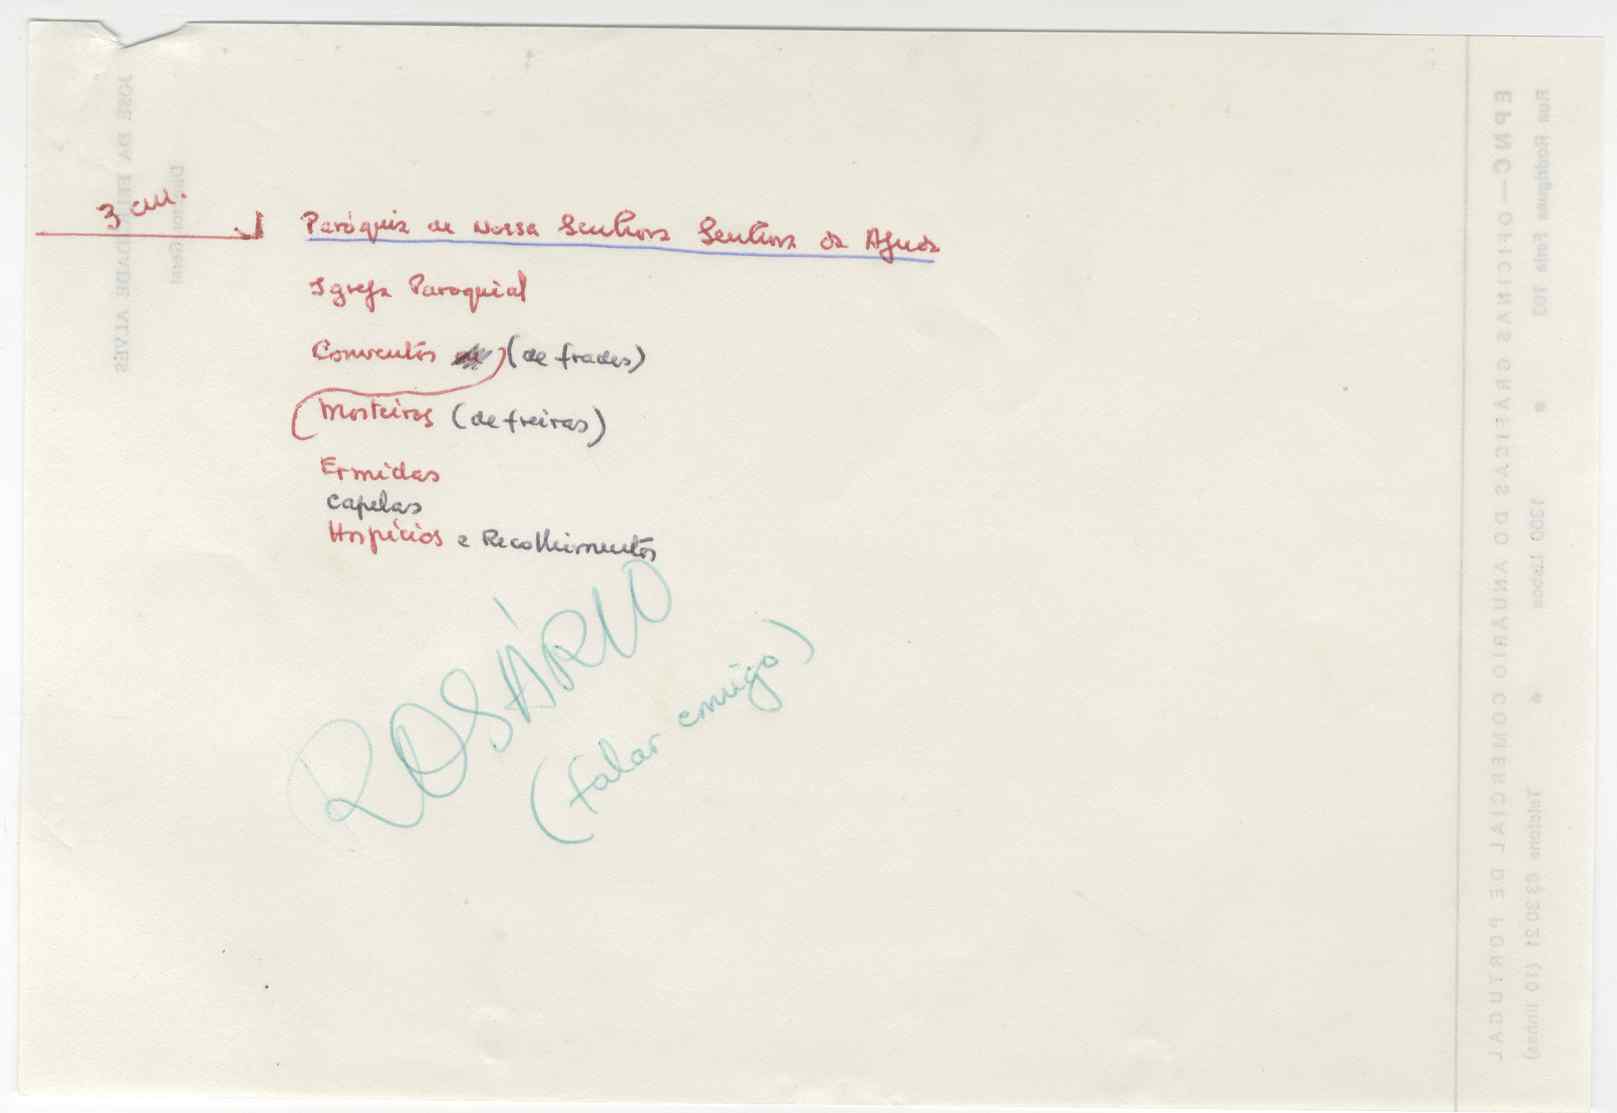 3 cm.
Paróquia de Nossa Senhora Senhora da Ajuda
Igreja Paroquial
Conventos (de frades)
Mosteiros (de freiras)
Ermidas
Capelas
Hospícios e Recolhimentos
ROSÁRIO
(falar comigo)
EPNC — OFICINAS GRÁFICAS DO ANUÁRIO COMERCIAL DE PORTUGAL
Rua Rodrigues Faria 103 • 1300 Lisboa • Telefone 63 30 21 (10 linhas)
Director Geral